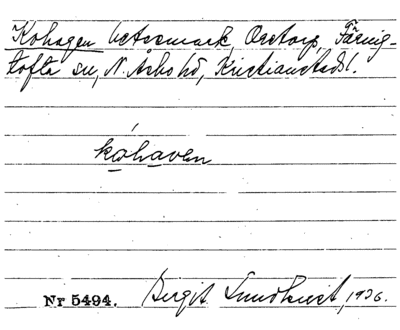 Kohagen betesmark, Oretorp, Färnig-
tofta sn, N. Åsbo hd, Kristianstads l.
kóhaven
Nr 5494. Birgit Lundkvist, 1936.